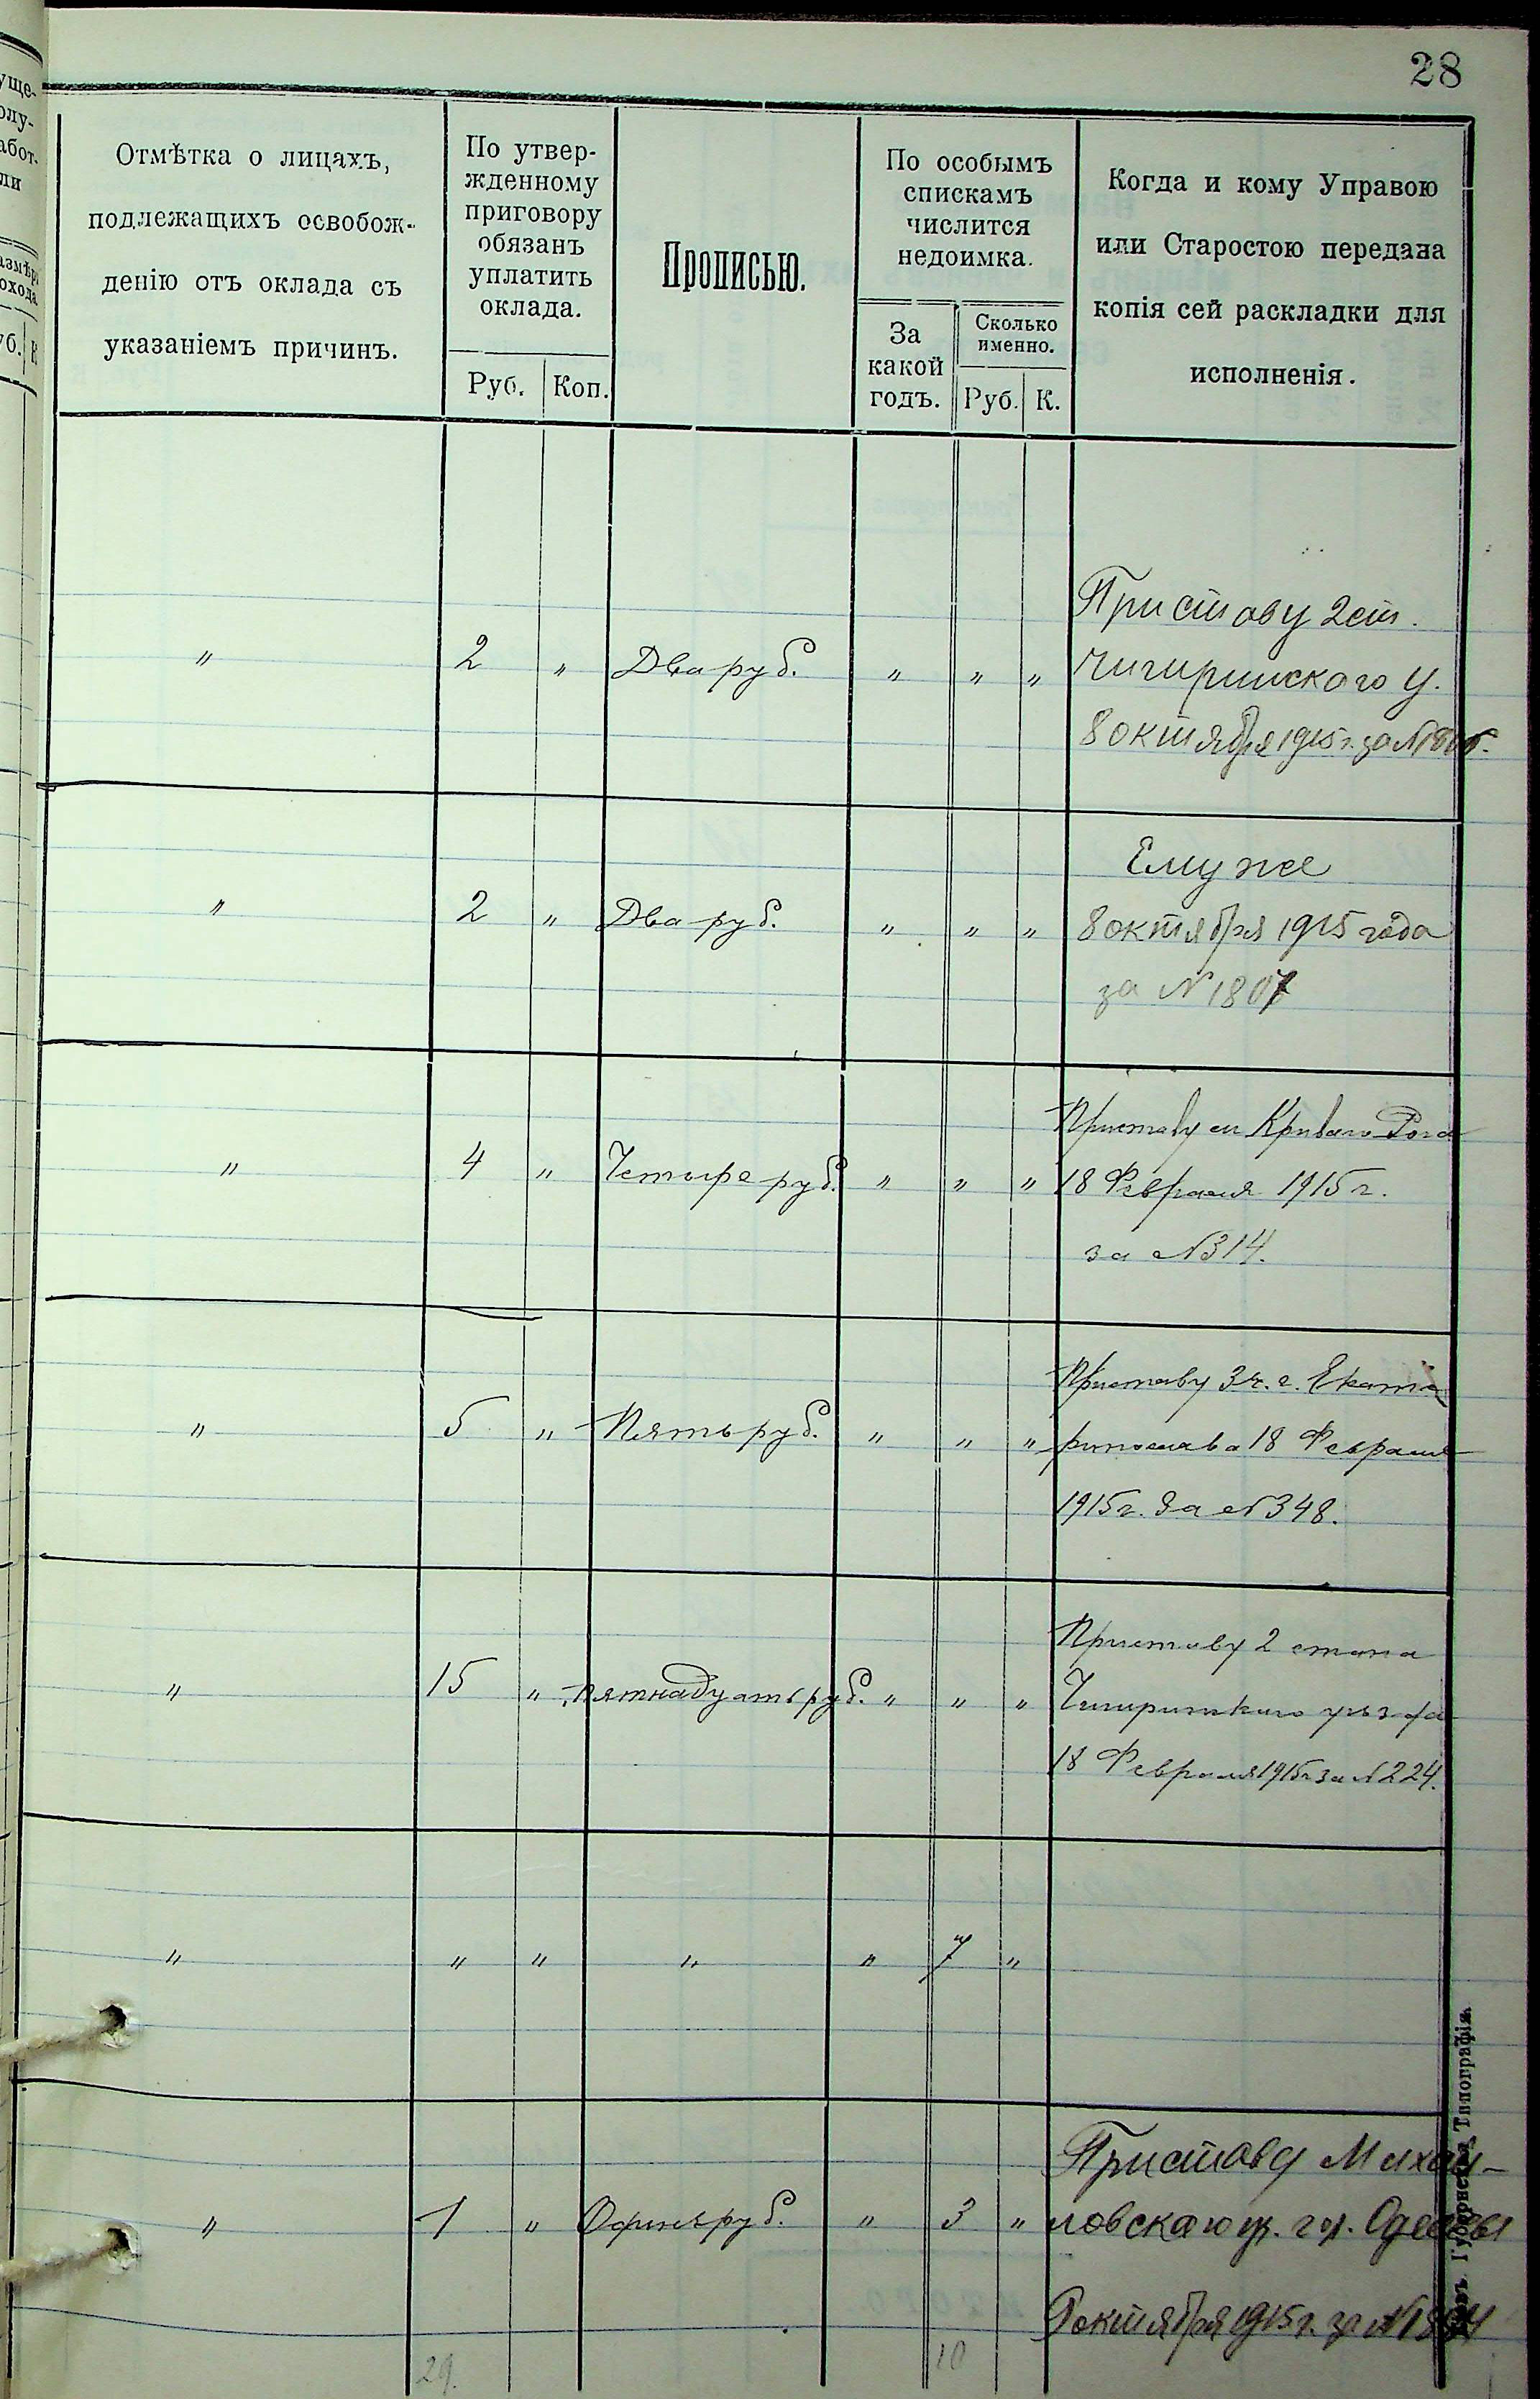 28
Отмѣтка о лицахъ,
подлежащихъ освобож-
денію отъ оклада съ
указаніемъ причинъ.
По утвер-
жденному
приговору
обязанъ
уплатить
оклада.
Руб. Коп.
Прописью.
По особымъ
спискамъ
числится
недоимка.
За
какой
годъ.
Сколько
именно.
Руб. К.
Когда и кому Управою
или Старостою передана
копія сей раскладки для
исполненія.
Приставу 2 ст.
" 2 " Два руб. " " " Чигиринскаго у.
8 октября 1915 г. за №
Ему же
" 2 " Два руб. " " " 8 октября 1915 года
за № 1807
Приставу м. Криваго Рога
" 4 " Четыре руб. " " " 18 Февраля 1915 г.
за № 314.
Приставу 3 ч. г. Екате
" 5 " Пять руб. " " " ринослава 18 Февраля
1915 г. За № 348.
Приставу 2 стана
" 15 " Пятнадцать руб. " " " Чигиринскаго уѣзда
18 Февраля 1915 г за № 224.
" " " " " 7 "
Приставу Михай-
" 1 " Одинъ руб. " 3 " ловскаго уч. гор. Одессы
8 октября 1915 г. за №
29. 10
Губернская Типографія.